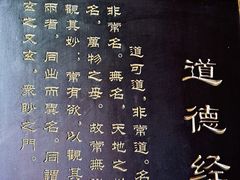 道德经
道可道，非常道。名
非常名。無名，天地之
名，萬物之母。故常無
觀其妙；常有欲以觀其
兩者，同出而異名。同謂
玄之又玄，衆眇之門。